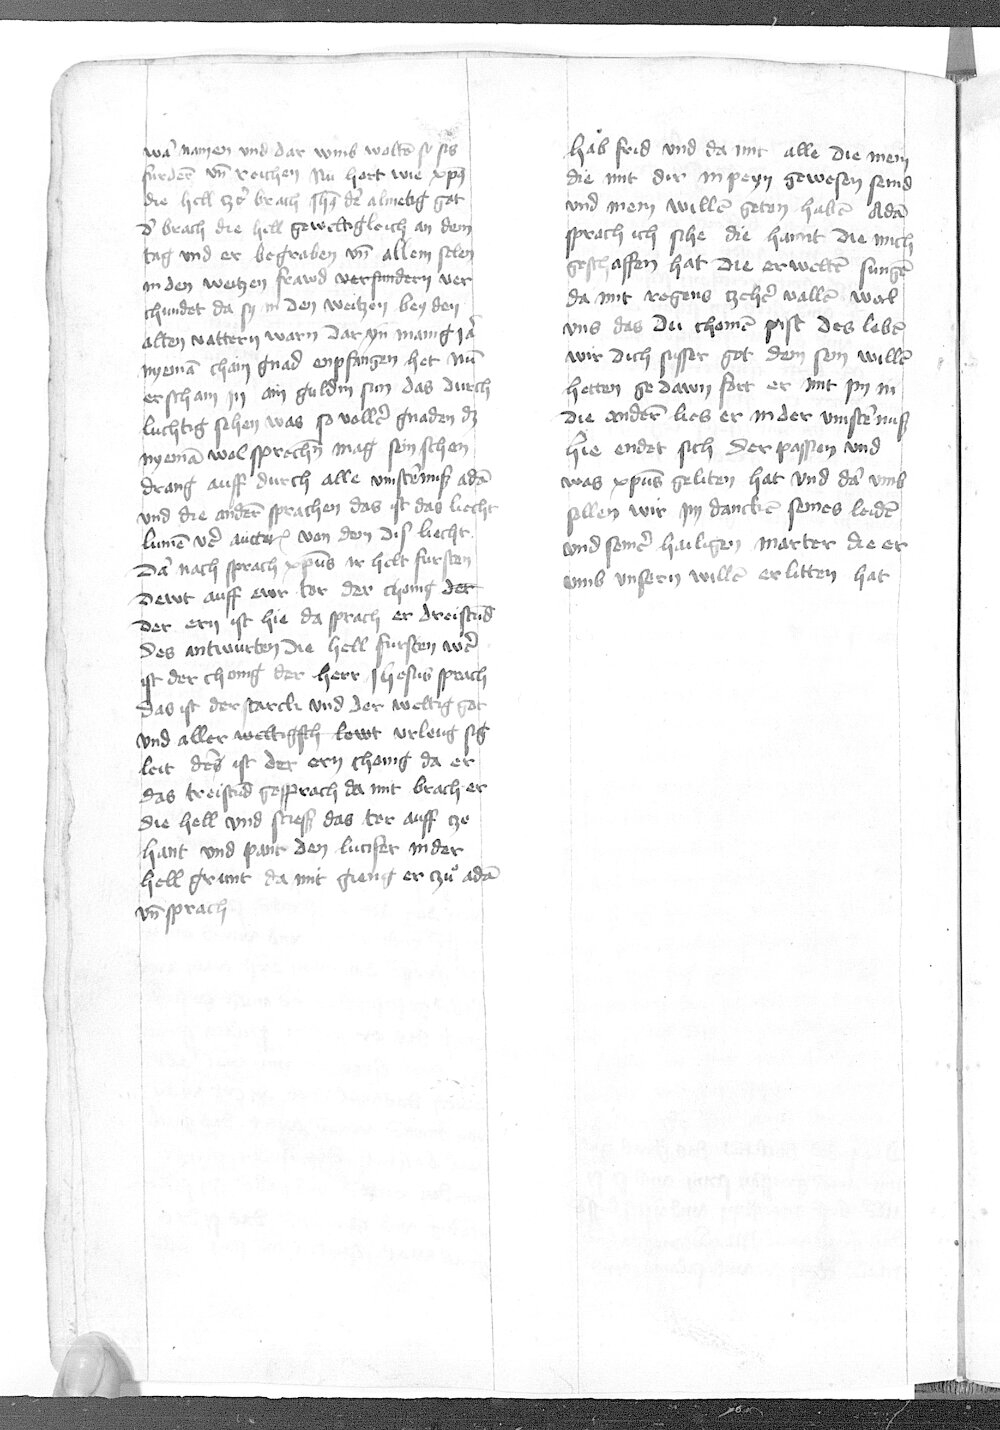 war namen und dar vmb wolt er sis
furdern vnd reichen Nu hort wie xps
die hell zerbrach Ihs der almetig got
der brach die hell geweltigleich an dem
tag und er begraben vñ allem selen
in den weitzen frawd versundern ver
chundet da sy in den weitzen bey den
alten vattern warn Dar yn manig jar
nyemā chain gnad enpfangen het Nū
erschain in ain guldin sun das durch
luchtig sehen was so voller gnaden dz
nyemā wol sprechn mag sein schen
drang auff durch alle vinsternuß adā
und die andern sprachen das ist das liecht
lumē von dem diß liecht
Dar nach sprach xpūs ir helt fursten
Dewt auff ewr tor der chonig der
Der ern ist hie da sprach er dreistūd
Des antwurten Die hell fursten wer
ist der chonig der herr Ihesus sprach
Das ist der starck und der weltig got
und aller weltigsth lewt vrleug sig
leit der ist der ern chonig da er
das dreistūd gesprach da mit brach er
die hell und stieß das tor auff cze
hant und pant den lucifer in der
hell grunt da mit gieng er czu adā
vñ sprach
hab frid und da mit alle die mein
die mit dir in peyn gewesen seind
und mein willē geton habē Adā
sprach ich sihe die hannt die mich
geschaffen hat die erweltē sungē
da mit regens czeher vallē wol
vns das du chomē pist des lobē
wir dich susser got dem sein willē
hetten gedawn fort er mit im in
die andern lies er in der vinsternuß
hie endet sich der passion und
was xpūs geliten hat und dar vmb
sollen wir im danckē seines leidē
und seiner hailigen marter die er
vmb unsern willē erlitten hat